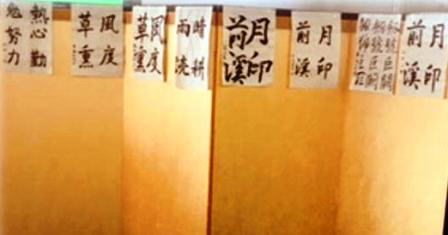 熱心勤
勉努力
風度
草熏
風度
草熏
晴耕
雨読
月印
前溪
月印
前溪
月印
前溪